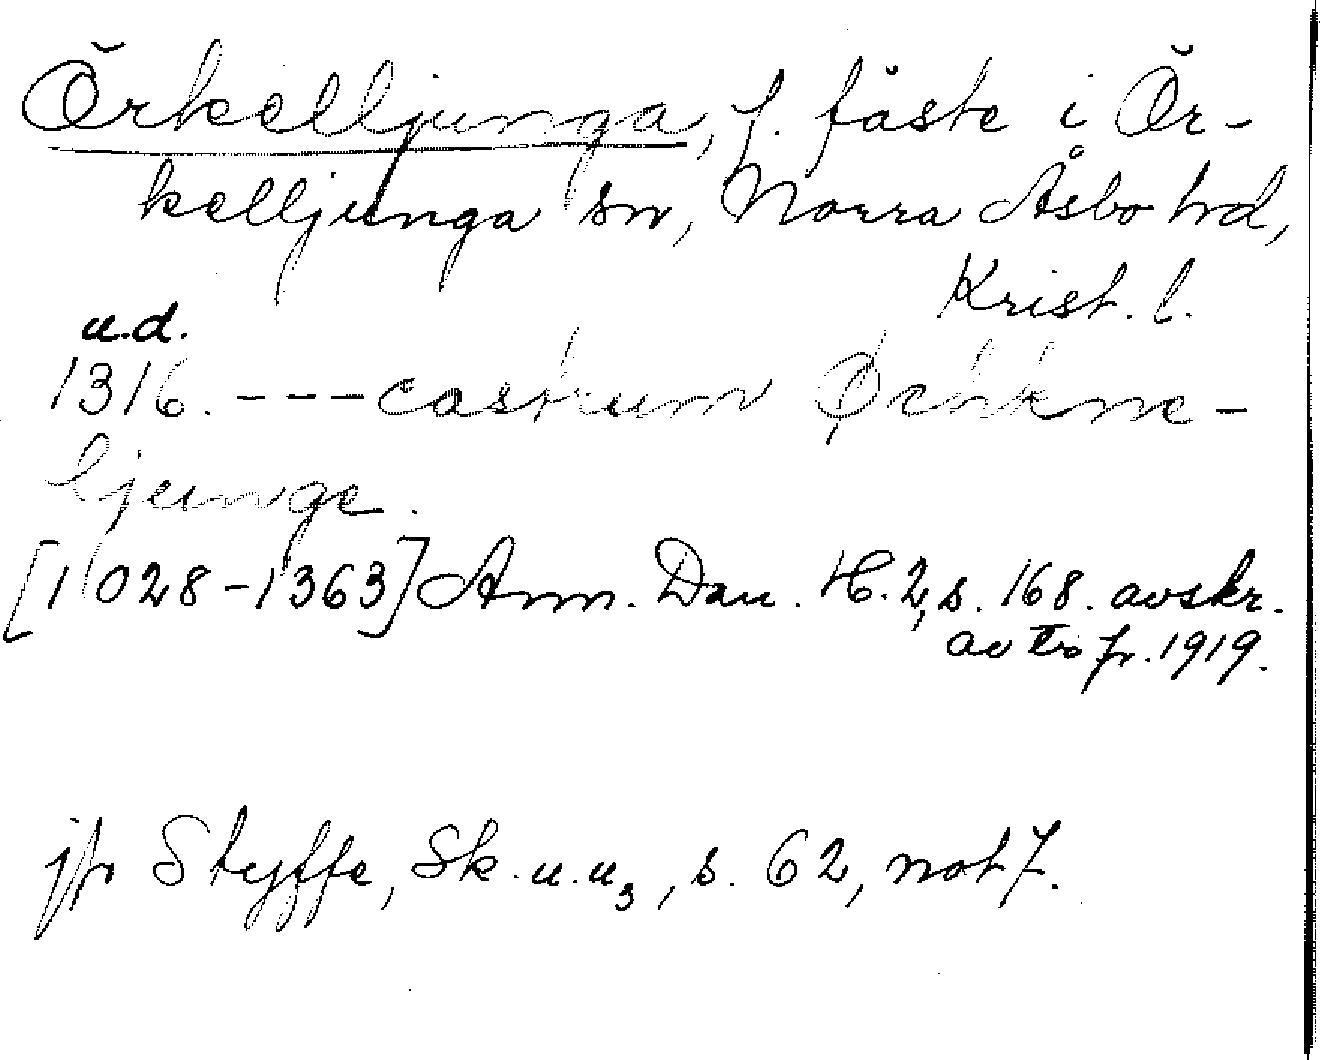 Örkelljunga, f. fäste i Ör-
kelljunga sn, Norra Åsbo hd,
Krist. l.
u.d.
1316. --- castrum Ørhkne-
ljunge.
[1028-1363] Ann. Dan. H. 2, s. 168. avskr.
av fr. 1919.
jfr Styffe, Sk.u.u3, s. 62, not 7.